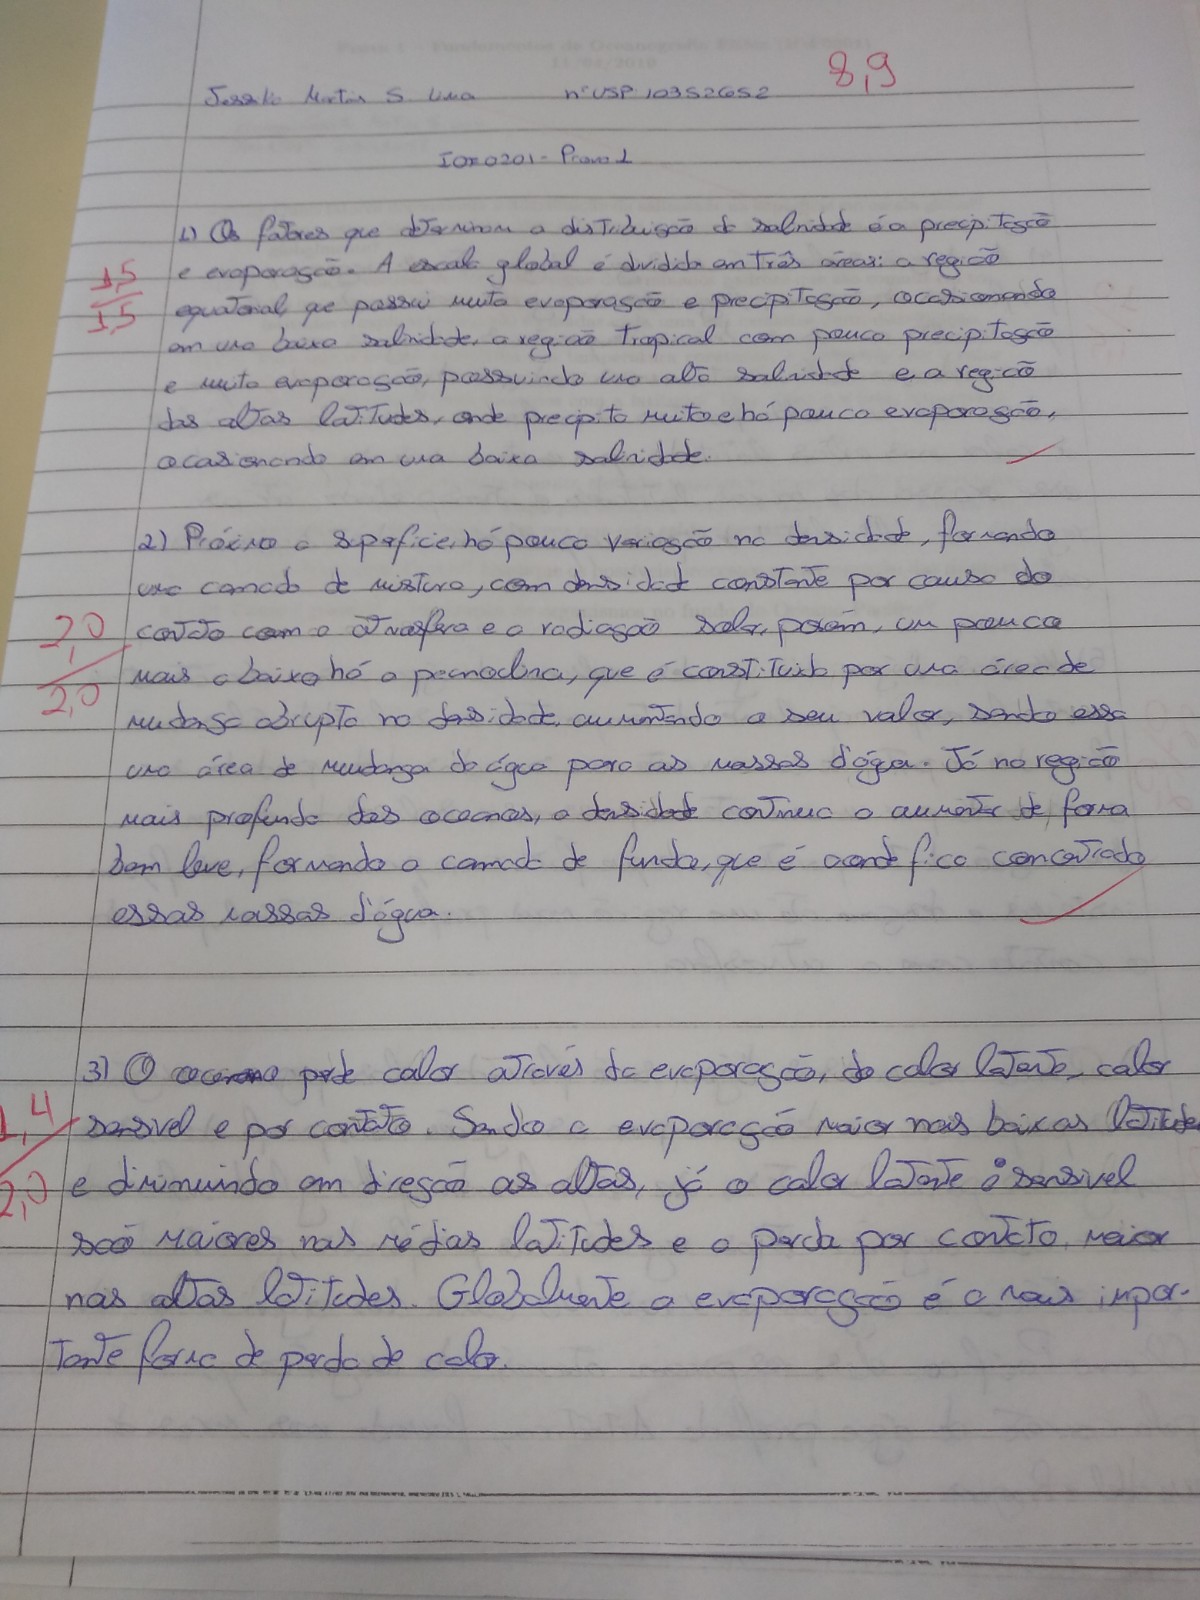 8,9
Martins S. Lima nº USP 10352652
IOF0201 - Prova 1
1) Os fatores que determinam a distribuição de salinidade é a precipitação
1,5
1,5
e evaporação. A escala global é dividida em três áreas: a região
equatorial, que possui muita evaporação e precipitação, ocasionando
em uma baixa salinidade, a região tropical com pouca precipitação
e muita evaporação, possuindo uma alta salinidade e a região
das altas latitudes, onde precipita muito e há pouca evaporação,
ocasionando em uma baixa salinidade.
2) Próximo a superfície, há pouca variação na densidade, formando
uma camada de mistura, com densidade constante por causa do
2,0
2,0
contato com a atmosfera e a radiação solar, porém, um pouco
mais abaixo há a picnoclina, que é constituida por uma área de
mudança abrupta na densidade, aumentando o seu valor, sendo essa
uma área de mudança da água para as massas d'água. Já na região
mais profunda dos oceanos, a densidade continua a aumentar de forma
bem leve, formando a camada de fundo, que é aonde fica concentrado
essas massas d'água.
3) O oceano perde calor através da evaporação, do calor latente, calor
1,4
2,0
sensivel e por contato. Sendo a evaporação maior nas baixas latitudes
e diminuindo em direção as altas, já o calor latente e sensivel
são maiores nas médias latitudes e a perda por contato maior
nas altas latitudes. Globalmente a evaporação é a mais impor-
tante forma de perda de calor.